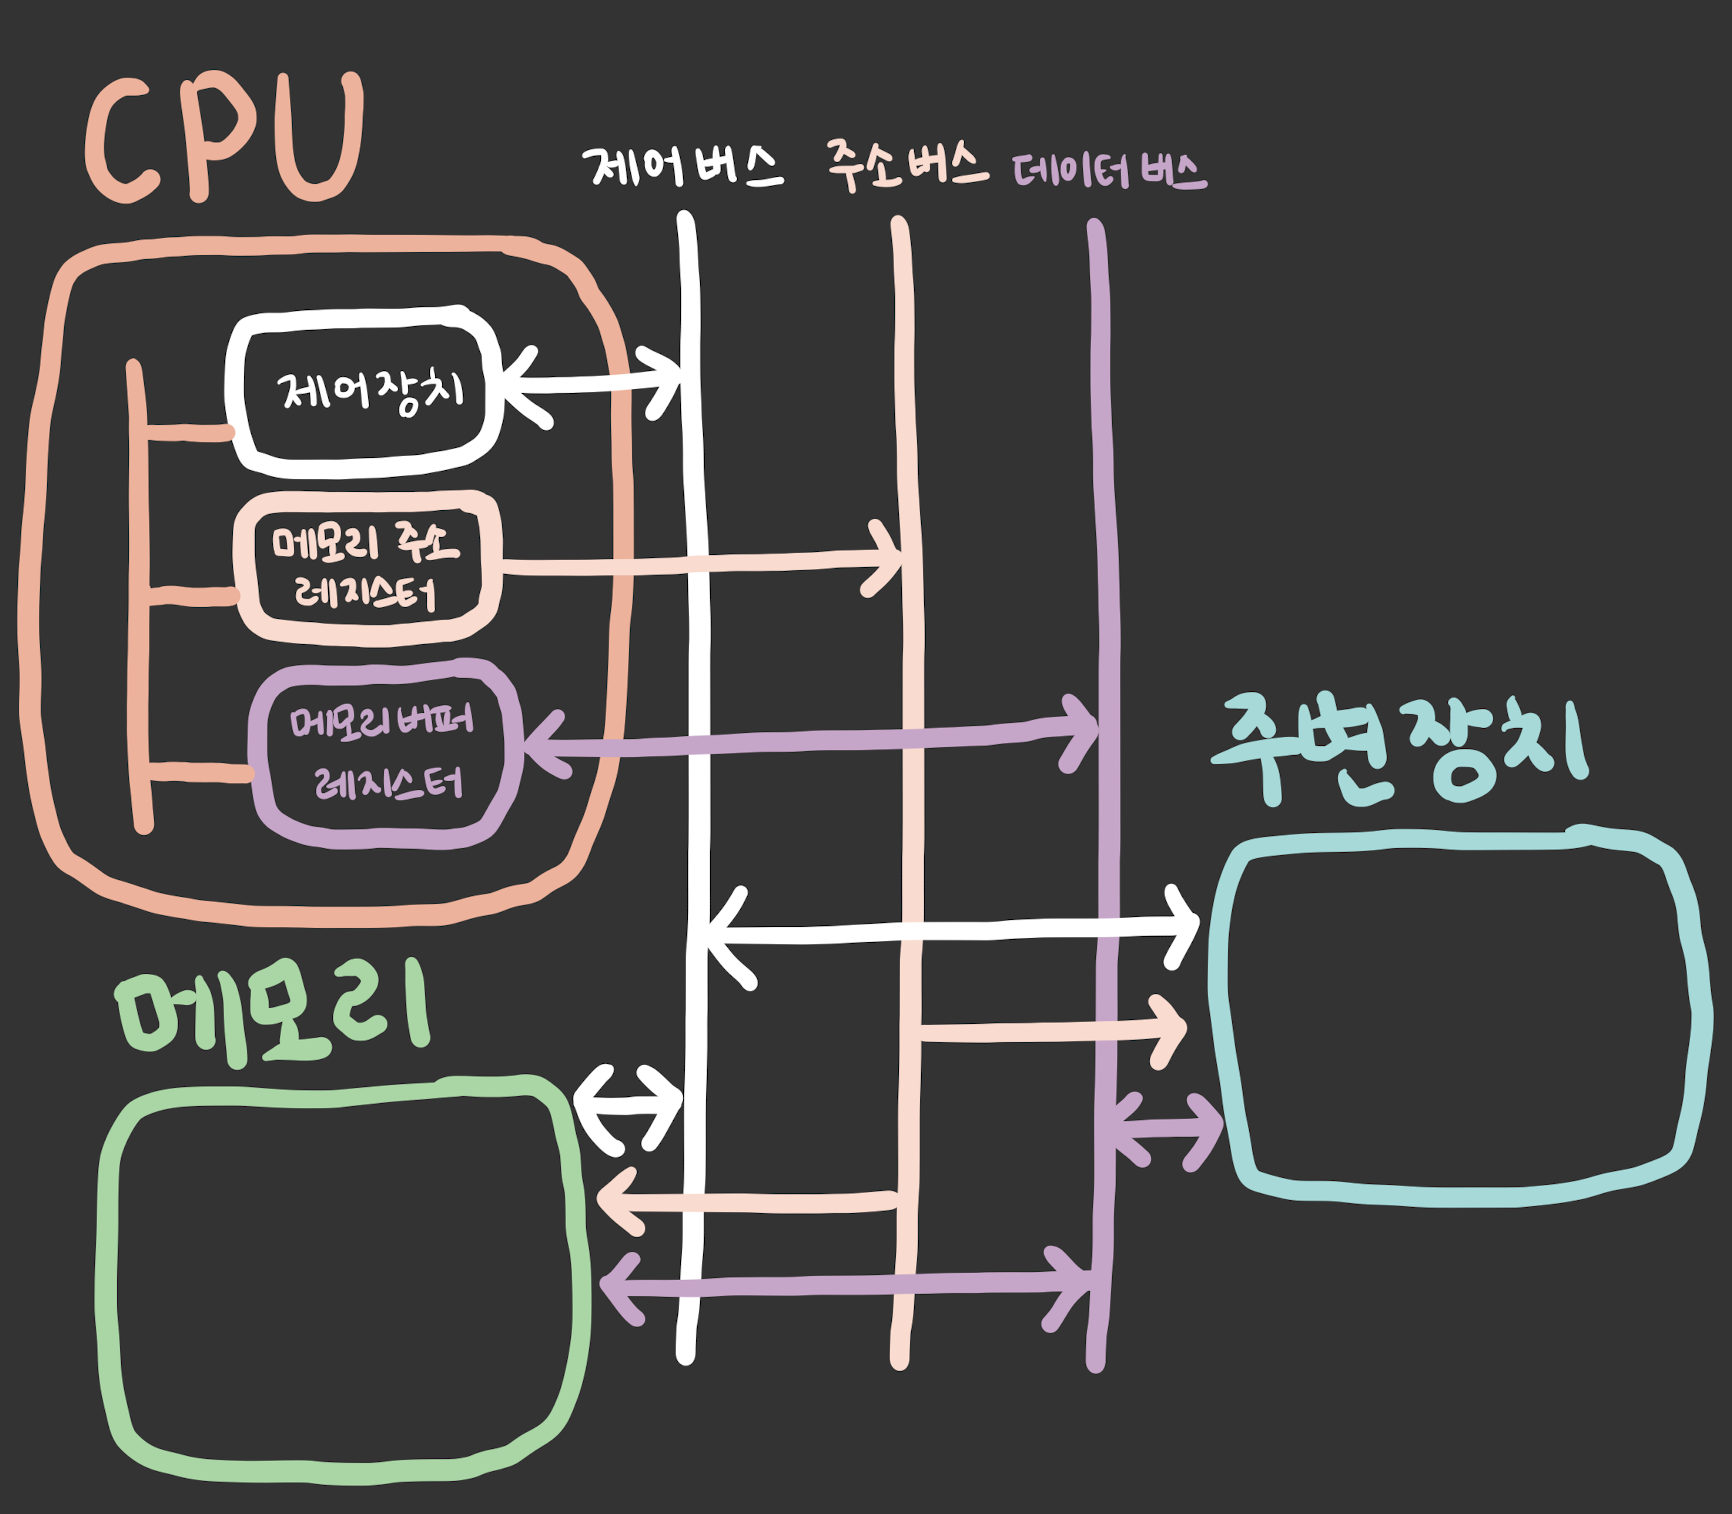 CPU
제어버스 주소버스 데이터버스
제어장치
메모리 주소
레지스터
메모리버퍼
레지스터
주변장치
메모리